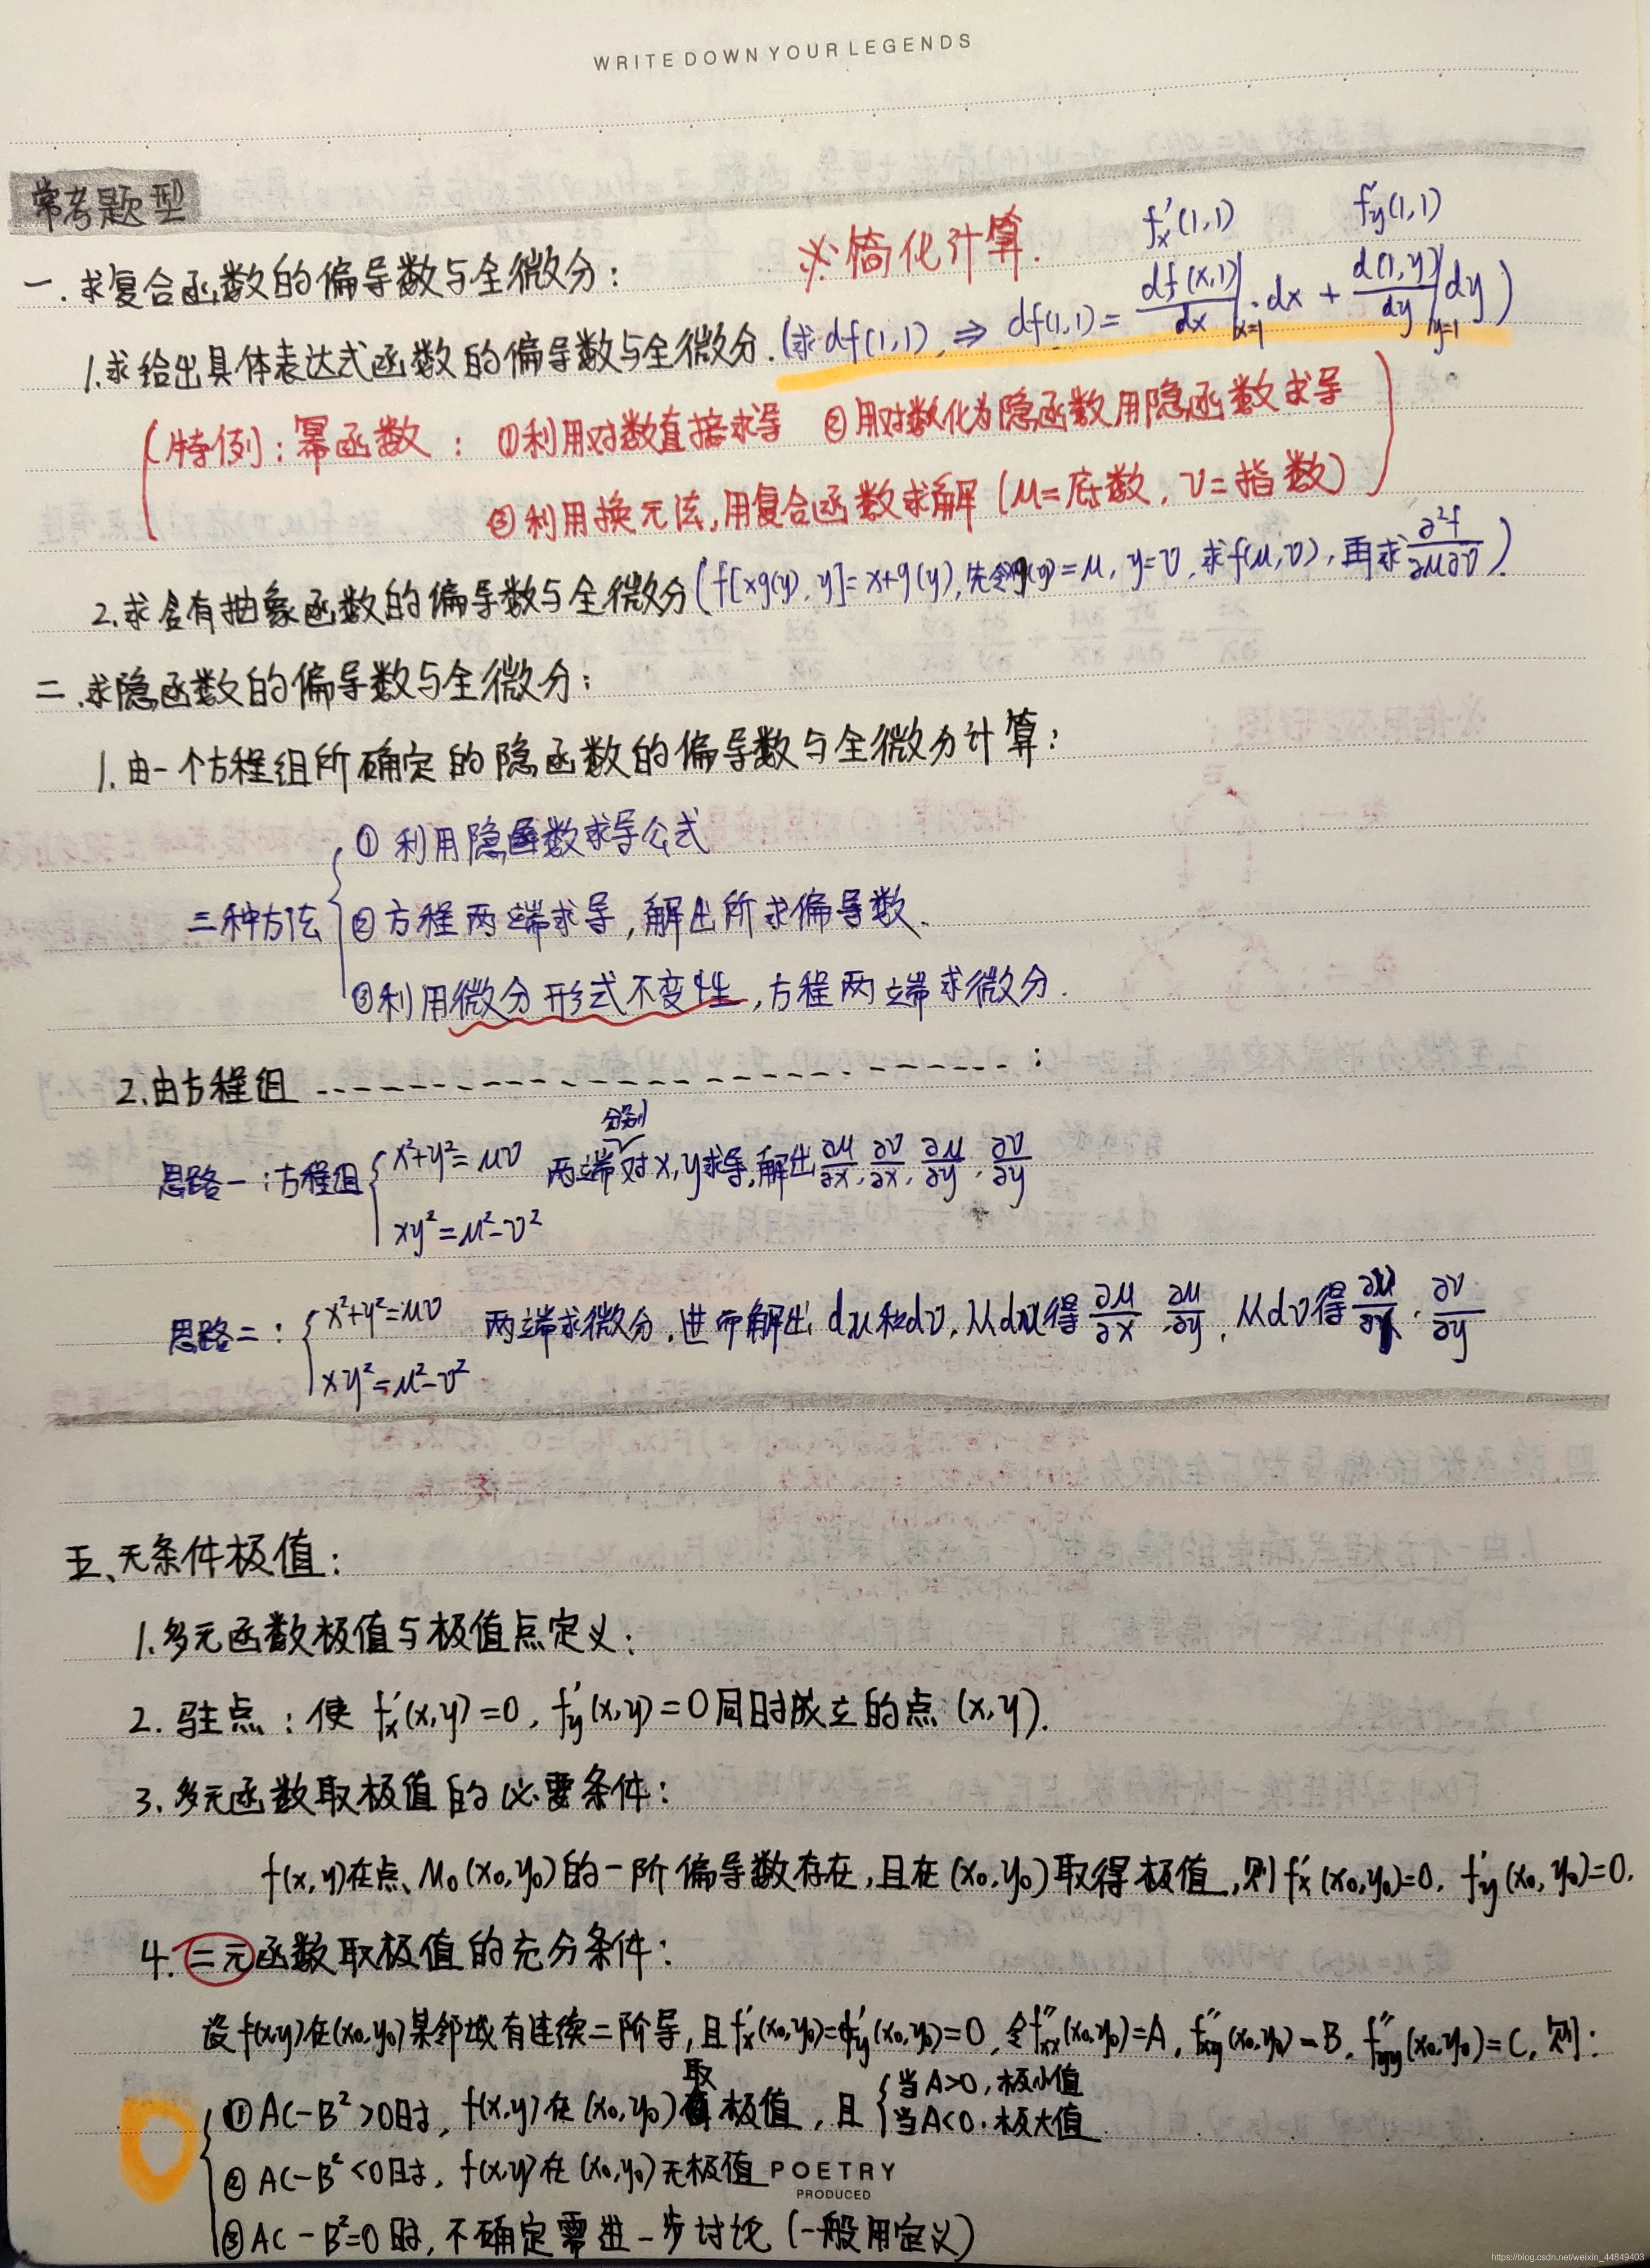 WRITE DOWN YOUR LEGENDS
常考题型
※简化计算.
f'x(1,1) f'y(1,1)
一.求复合函数的偏导数与全微分:
1.求给出具体表达式函数的偏导数与全微分.(求df(1,1),⇒ df(1,1)= df(x,1)/dx|x=1·dx + d(1,y)/dy|y=1 dy)
(特例:幂函数: ①利用对数直接求导 ②用对数化为隐函数用隐函数求导
③利用换元法,用复合函数求解(μ=底数, v=指数))
2.求含有抽象函数的偏导数与全微分(f[xg(y),y]=x+g(y),先令xg(y)=μ, y=v,求f(μ,v),再求∂²f/∂μ∂v).
二.求隐函数的偏导数与全微分:
1.由一个方程组所确定的隐函数的偏导数与全微分计算:
三种方法
① 利用隐函数求导公式
② 方程两端求导,解出所求偏导数.
③利用微分形式不变性,方程两端求微分.
2.由方程组 --------------------:
思路一:方程组{x²+y²=μv 两端分别对x,y求导,解出∂μ/∂x, ∂v/∂x, ∂μ/∂y, ∂v/∂y
xy²=μ²-v²
思路二:{x²+y²=μv 两端求微分,进而解出dμ和dv,从dμ得∂μ/∂x, ∂μ/∂y,从dv得 ∂v/∂y
xy²=μ²-v²
五、无条件极值:
1.多元函数极值与极值点定义:
2.驻点:使f'x(x,y)=0, f'y(x,y)=0同时成立的点(x,y).
3.多元函数取极值的必要条件:
f(x,y)在点M₀(x₀,y₀)的一阶偏导数存在,且在(x₀,y₀)取得极值,则f'x(x₀,y₀)=0, f'y(x₀,y₀)=0.
4.二元函数取极值的充分条件:
设f(x,y)在(x₀,y₀)某邻域有连续二阶导,且f'x(x₀,y₀)=f'y(x₀,y₀)=0,令f''xx(x₀,y₀)=A, f''xy(x₀,y₀)=B, f''yy(x₀,y₀)=C,则:
①AC-B²>0时, f(x,y)在(x₀,y₀)取极值,且{当A>0,极小值
当A<0,极大值
②AC-B²<0时, f(x,y)在(x₀,y₀)无极值
③AC-B²=0时,不确定需进一步讨论(一般用定义)
POETRY
PRODUCED
https://blog.csdn.net/weixin_44849403